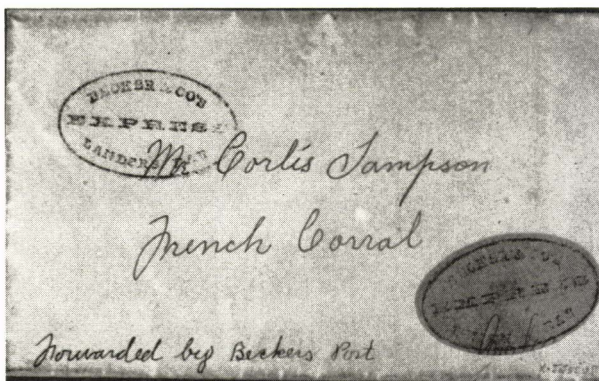 BECKER & CO'S
EXPRESS
Mr Corlis Sampson
French Corral
EXPRESS
Forwarded by Beckers Post